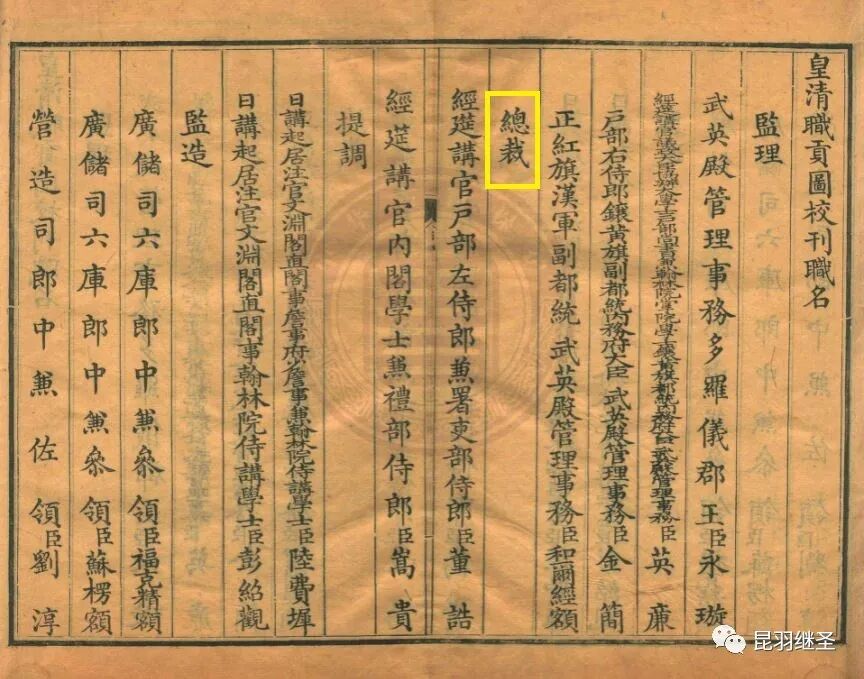 皇清職貢圖校刊職名
監理
武英殿管理事務多羅儀郡王臣永璇
經筵講官議政大臣協辦大學士 部尚書 翰林院掌院學士 旗都統內務府大臣武英殿管理事務臣英廉
戶部右侍郎鑲黃旗副都統內務府大臣武英殿管理事務臣金簡
正紅旗漢軍副都統武英殿管理事務臣和爾經額
總裁
經筵講官戶部左侍郎兼署吏部侍郎臣董誥
經筵講官內閣學士兼禮部侍郎臣嵩貴
提調
日講起居注官文淵閣直閣事詹事府少詹事兼翰林院侍講學士臣陸費墀
日講起居注官文淵閣直閣事翰林院侍講學士臣彭紹觀
監造
廣儲司六庫郎中兼叅領臣福克精額
廣儲司六庫郎中兼叅領臣蘇楞額
營造司郎中兼佐領臣劉淳
昆羽继圣